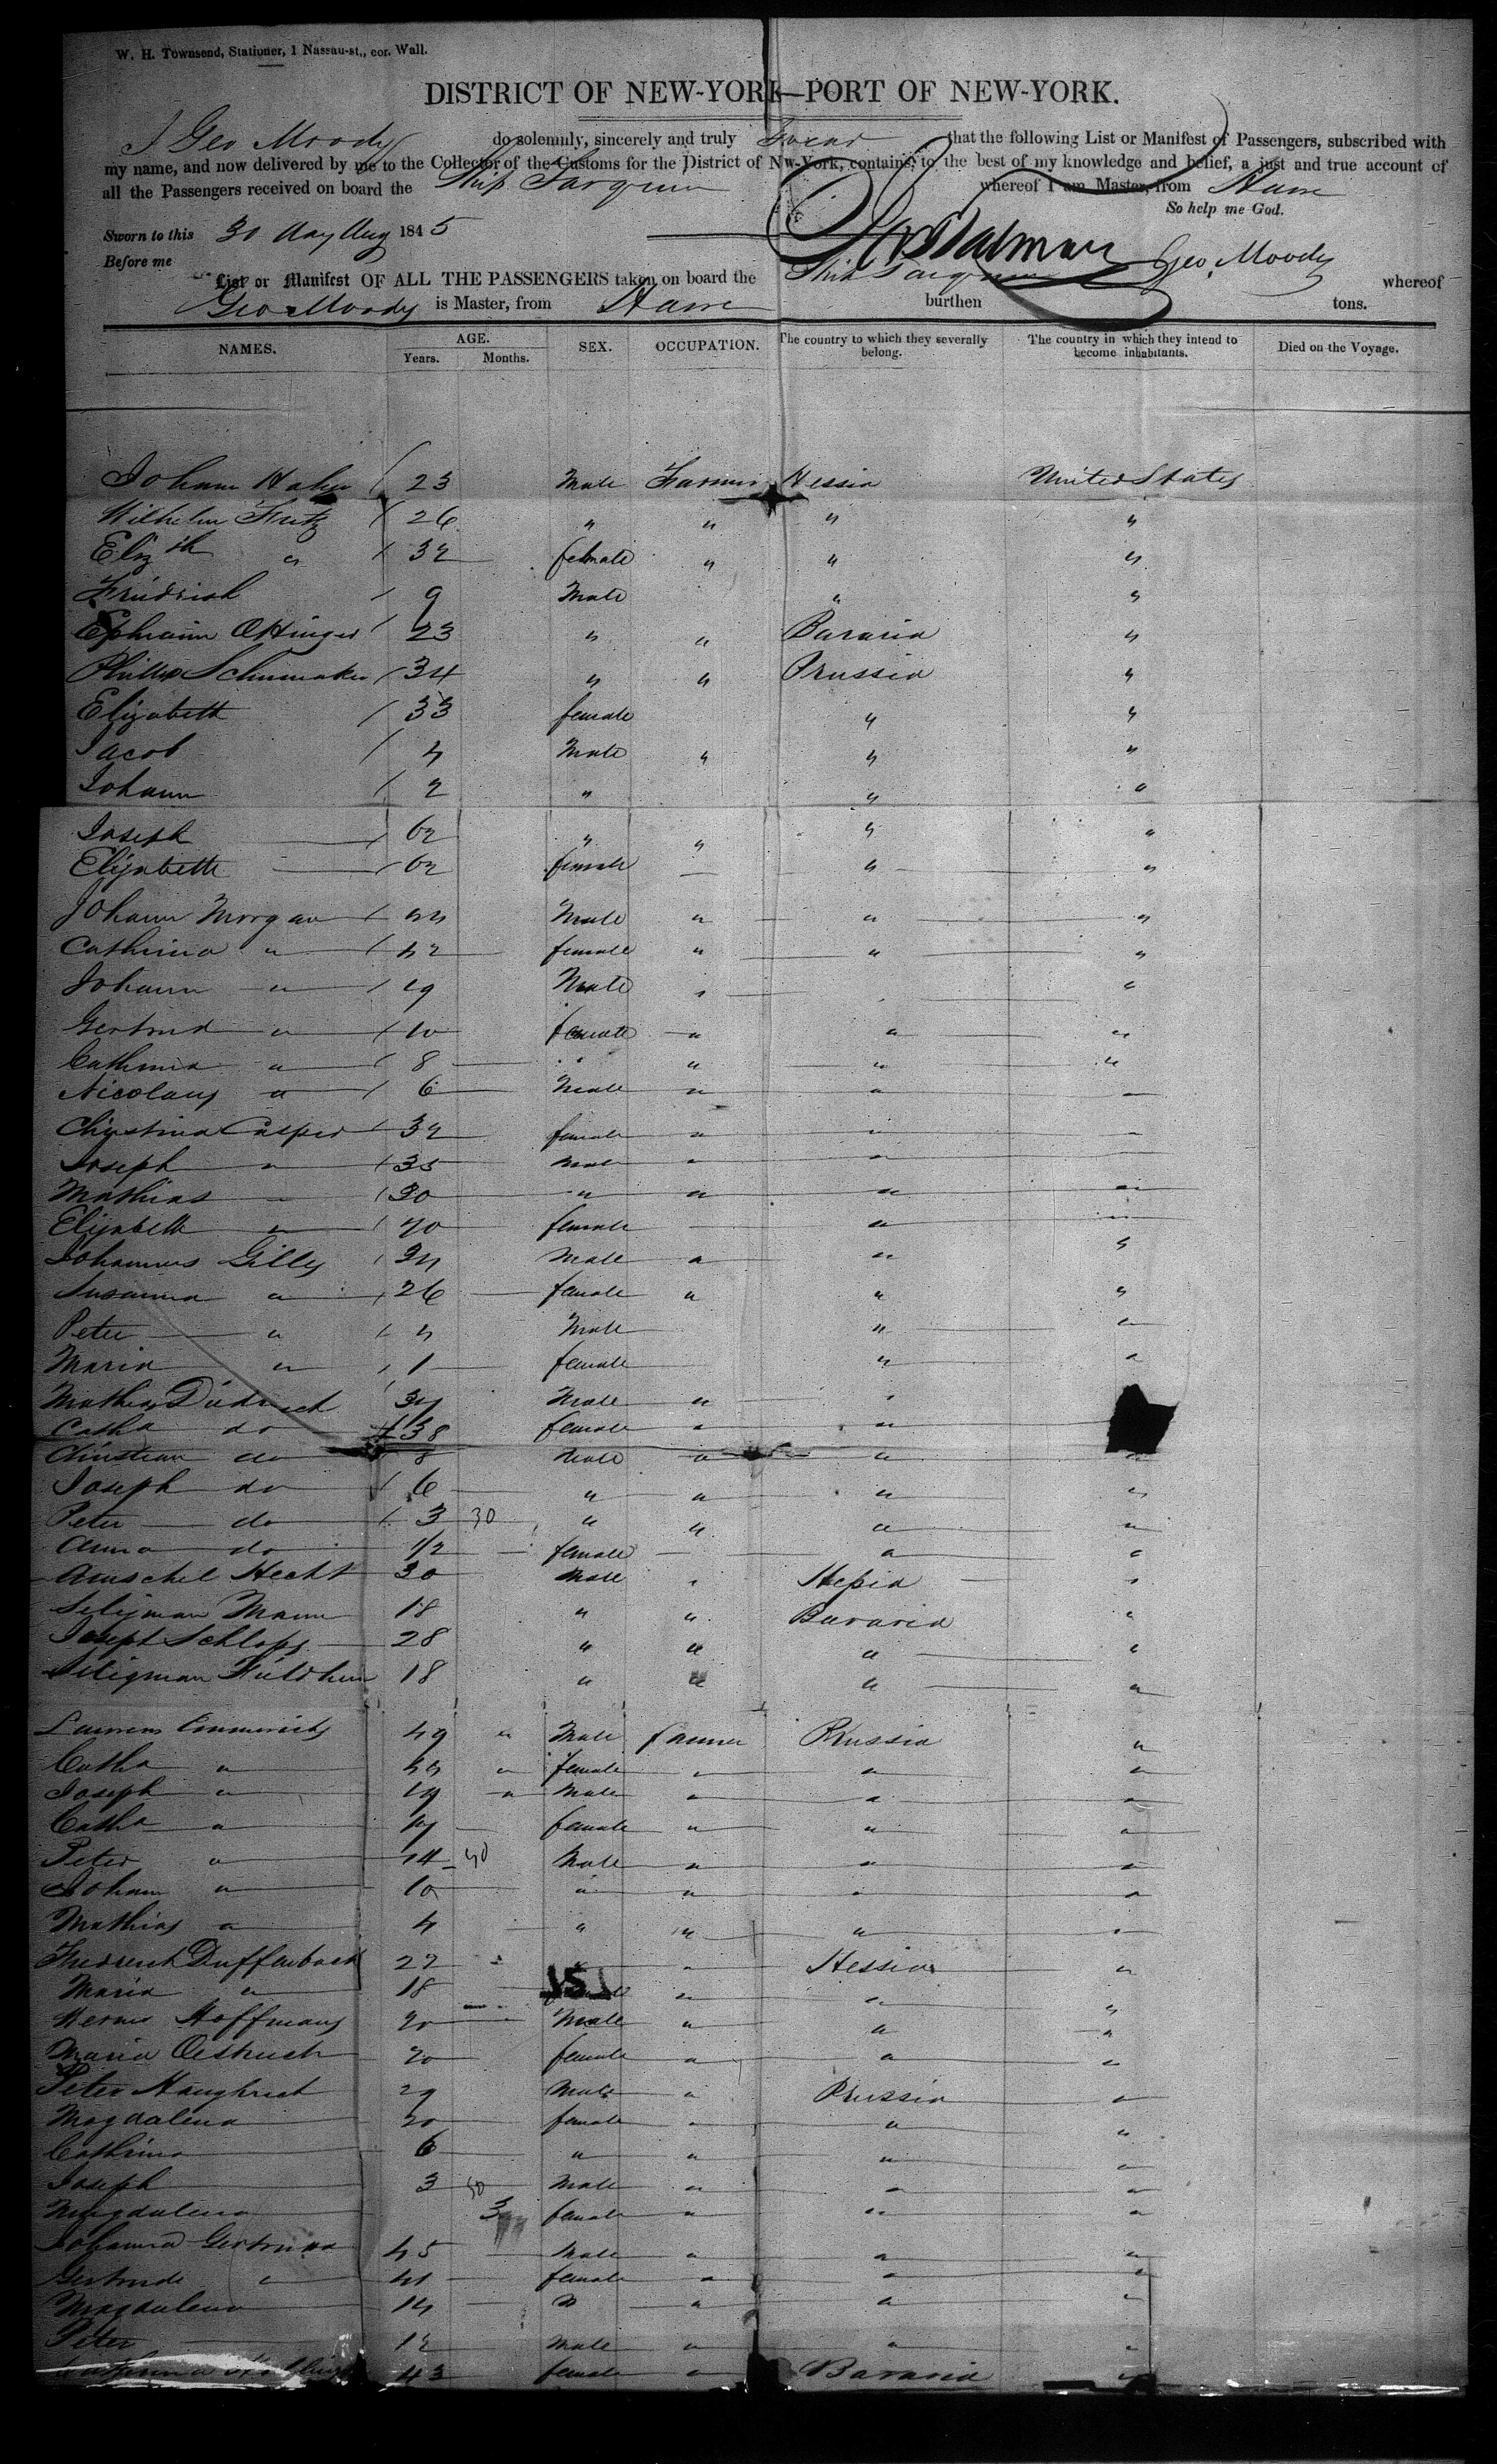 W. H. Townsend, Stationer, 1 Nassau-st., cor. Wall.
DISTRICT OF NEW-YORK—PORT OF NEW-YORK.
I Geo Moody do solemnly, sincerely and truly Swear that the following List or Manifest of Passengers, subscribed with
my name, and now delivered by me to the Collector of the Customs for the District of Nw-York, contains, to the best of my knowledge and belief, a just and true account of
all the Passengers received on board the Ship whereof I am Master, from Havre
So help me God.
Sworn to this 30 day Aug 1845
Before me Geo. Moody
List or Manifest OF ALL THE PASSENGERS taken on board the Ship whereof
Geo Moody is Master, from Havre burthen tons.
NAMES. AGE. SEX. OCCUPATION. The country to which they severally belong. The country in which they intend to become inhabitants. Died on the Voyage.
Years. Months.
Johann 23 Male Farmer Hessia United States
Wilhelm Fritz 26 " " " "
Elizth " 32 female " " "
Friedrich 9 Male " "
Ephraim Ottinger 23 " " Bavaria "
Phillip Schumaker 34 " " Prussia "
Elizabeth 33 female " "
Jacob 4 Male " " "
Johann 2 " " "
Joseph 62 " " " "
Elizabeth 62 female " "
Johann Morgan Male " " "
Cathrina " 42 female " " "
Johann " 19 Male " " "
Gertrud " 10 female " " "
Cathrina " 8 " " " "
Nicolaus " 6 Male " " "
Christina Casper 32 female " " "
Joseph " 35 Male " " "
Mathias " 30 " " " "
Elizabeth " female " "
Johannes Gilles 34 Male " " "
Susanna " 26 female " " "
Peter " 4 Male " "
Maria " 1 female " "
Mathias Diedrich Male " "
Catha do 38 female " "
Christian do 8 Male " " "
Joseph do 6 " " " "
Peter do 3 30 " " " "
Anna do 1/2 female " "
Amschel Hecht 30 Male " Hessia "
Seligman Mann 18 " " Bavaria "
Joseph Schloss 28 " " " "
Seligman 18 " " " "
Emmerichs 49 " Male farmer Prussia "
Catha " 44 " female " " "
Joseph " 19 " Male " " "
Catha " female " " "
Peter " 14 40 Male " " "
Johann " 10 " " " "
Mathias " 4 " " " "
Friedrich Duffenbach 22 " " Hessia "
Maria " 18 151 " " "
Hoffmans 20 Male " " "
Maria Oestreich 20 female " " "
Peter 29 Male " Prussia "
Magdalena female " " "
Cathrina 6 " " " "
Joseph 3 50 Male " " "
Magdalena 3 female " " "
45 Male " " "
Gertrude " 41 female " " "
Magdalena 14 " " " "
Peter 12 Male " " "
43 female " Bavaria "